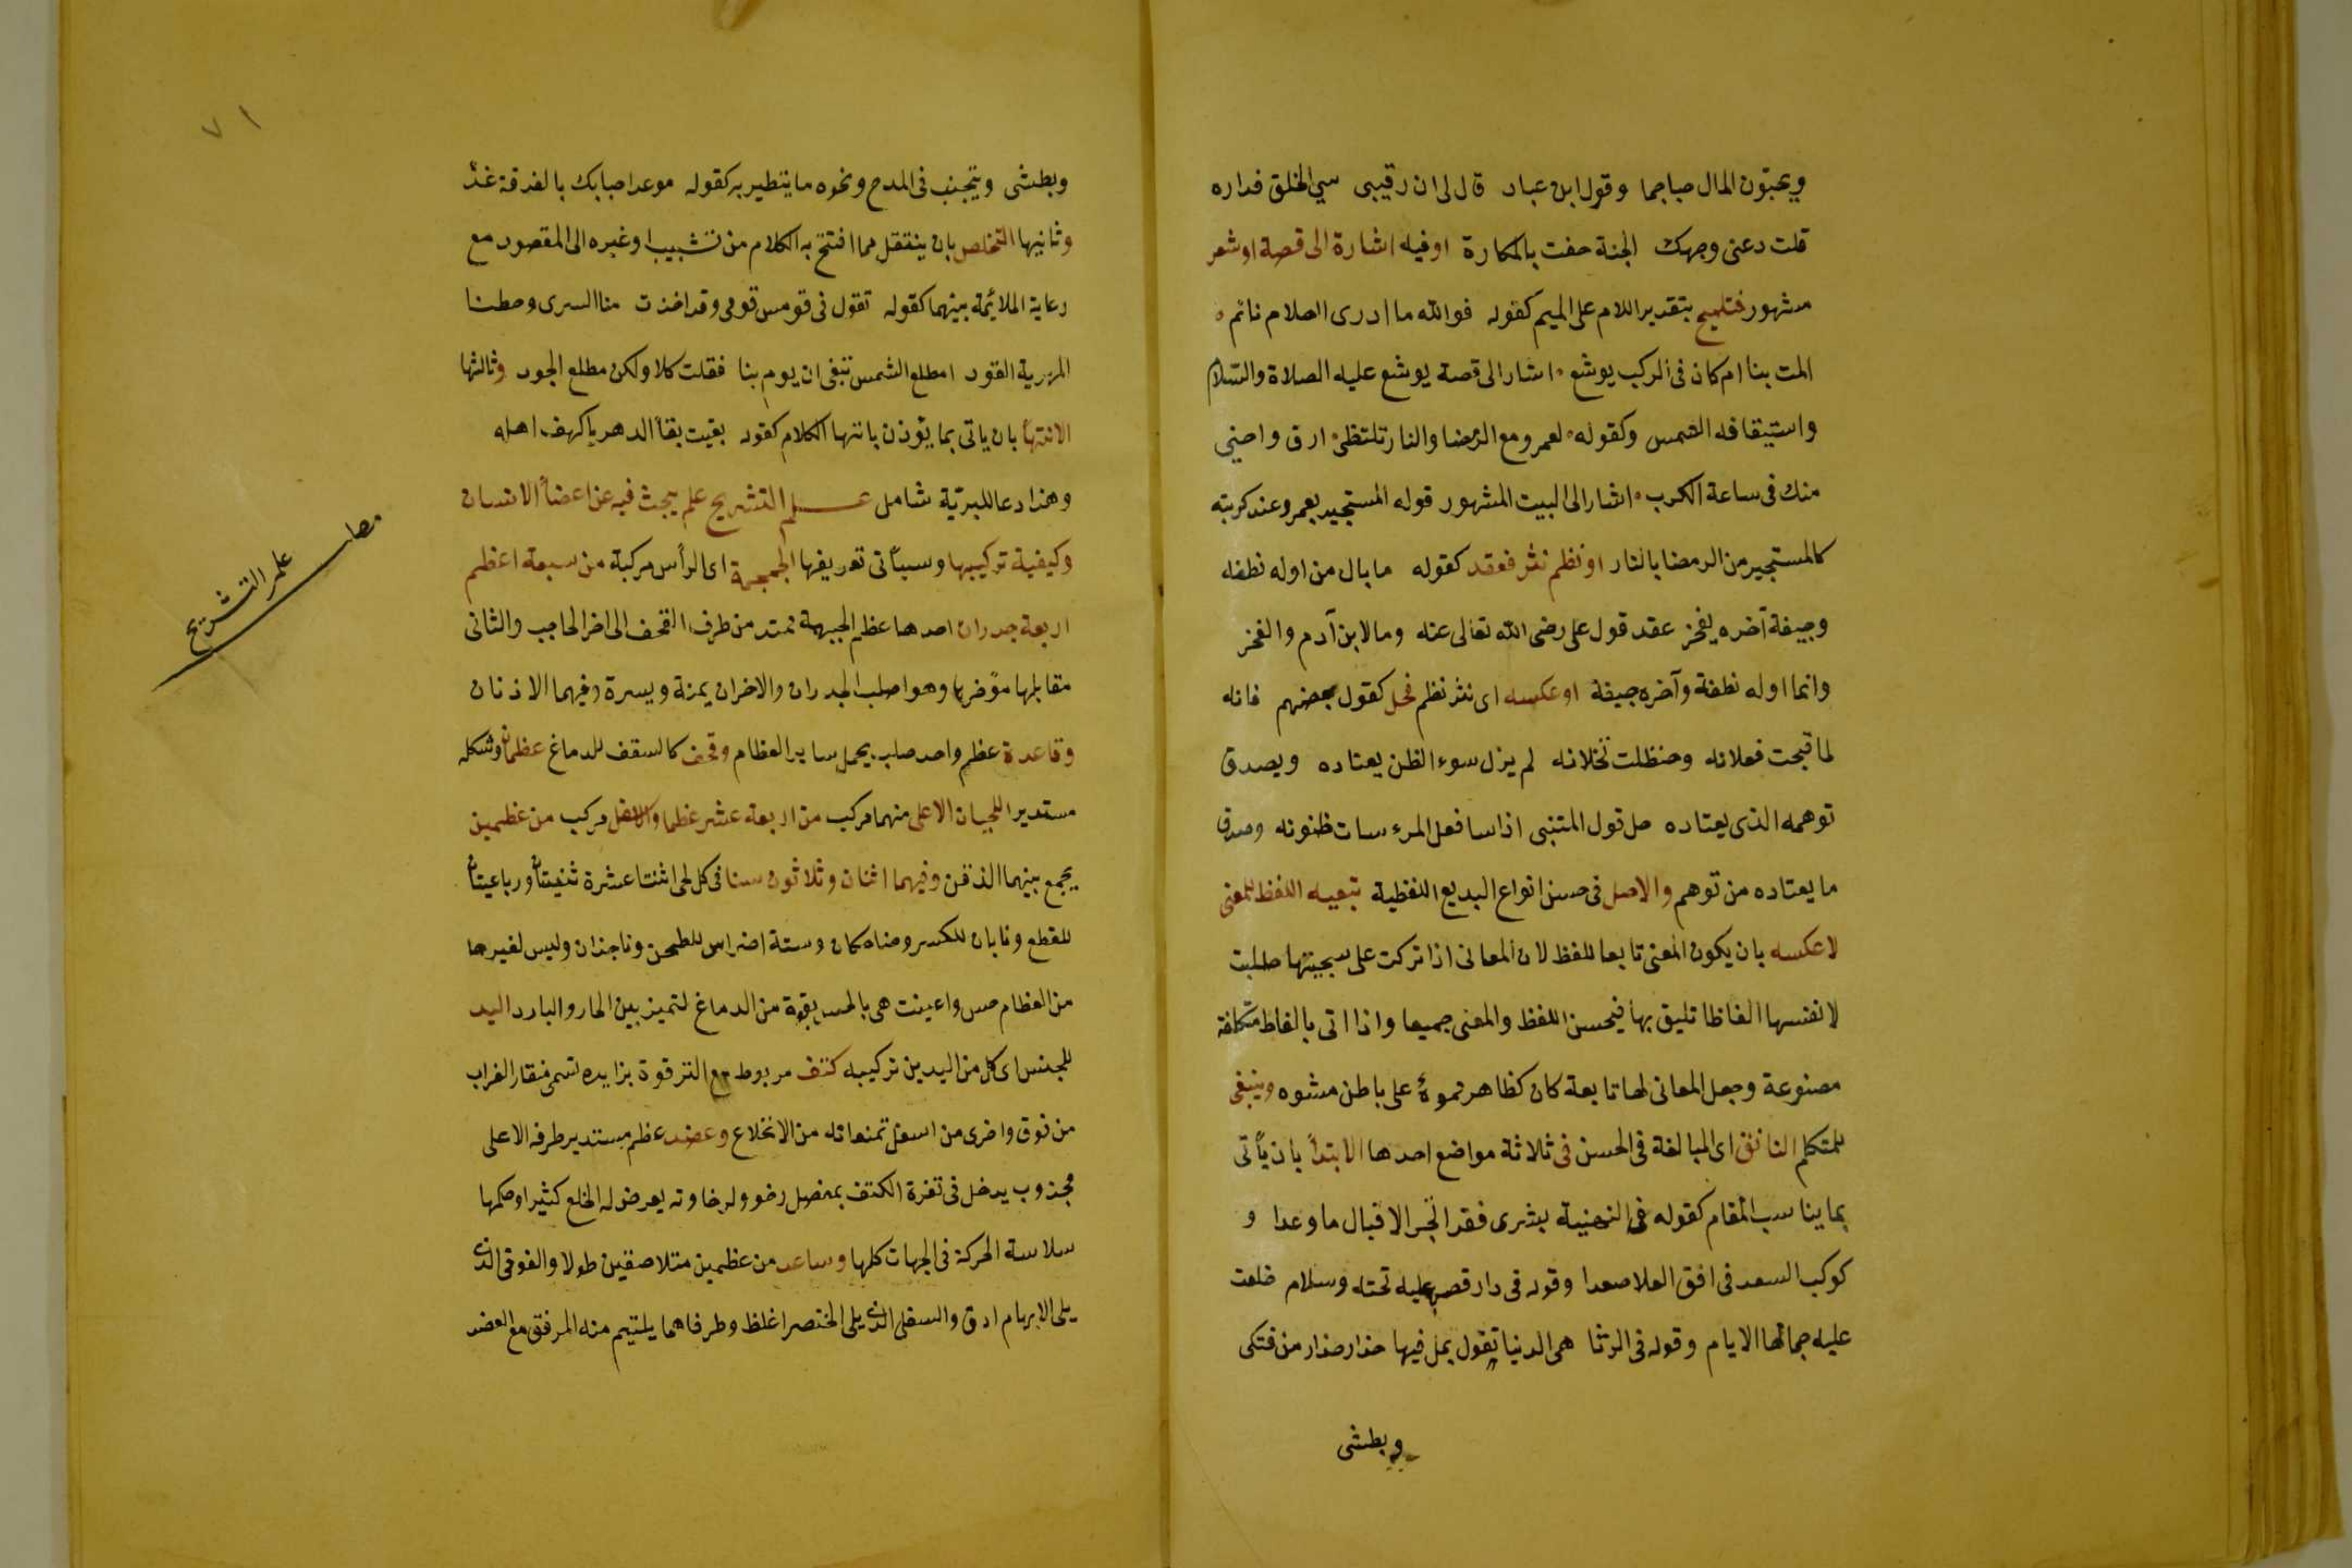 ويحبون المال حبا جما وقول ابن عباد قال لى ان رقيبى سيئ الخلق فداره
قلت دعنى وجهك الجنة حفت بالمكارة او فيه اشارة الى قصة او شعر
مشهور فتلميح بتقدير اللام على الميم كقوله فوالله ما ادرى احلام نائم
المت بنا ام كان فى الركب يوشع اشار الى قصة يوشع عليه الصلاة والسلام
واستيقافه الشمس وكقوله لعمرو مع الرمضا والنار تلتظى ارق واحنى
منك فى ساعة الكرب اشار الى البيت المشهور قوله المستجير بعمرو عند كربته
كالمستجير من الرمضا بالنار او نظم نثر فعقد كقوله ما بال من اوله نطفه
وجيفة آخره يفخر عقد قول على رضى الله تعالى عنه وما لابن آدم والفخر
وانما اوله نطفة وآخره جيفة او عكسه اى نثر نظم فحل كقول بعضهم فانه
لما قبحت فعلاته وحنظلت نخلاته لم يزل سوء الظن يعتاده ويصدق
توهمه الذى يعتاده حل قول المتنبى اذا سا فعل المرء سات ظنونه وصدق
ما يعتاده من توهم والاصل فى حسن انواع البديع اللفظية تبعيه اللفظ للمعنى
لا عكسه بان يكون المعنى تابعا للفظ لان المعانى اذا تركت على سجيتها طلبت
لانفسها الفاظا تليق بها فيحسن اللفظ والمعنى جميعا واذا اتى بالفاظ متكلفة
مصنوعة وجعل المعانى لها تابعة كان كظاهر مموه على باطن مشوه وينبغى
للمتكلم التانق اى المبالغة فى الحسن فى ثلاثة مواضع احدها الابتدأ بان يأتى
بما يناسب المقام كقوله فى التهنية بشرى فقد انجز الاقبال ما وعدا و
كوكب السعد فى افق العلا صعدا وقوله فى دار قصر عليه تحته وسلام خلعت
عليه جمالها الايام وقوله فى الرثا هى الدنيا تقول بمل فيها حذار حذار من فتكى
وبطشى
٧١
وبطشى ويتجنب فى المدح ونحوه ما يتطير به كقوله موعد احبابك بالفرقة غد
وثانيها التخلص بان ينتقل مما افتتح به الكلام من تشبيب او غيره الى المقصود مع
رعاية الملائمة بينهما كقوله تقول فى قومس قومى وقد اخذت منا السرى وخطنا
المهرية القود امطلع الشمس تبغى ان يوم بنا فقلت كلا ولكن مطلع الجود وثالثها
الانتهأ بان ياتى بما يؤذن بانتها الكلام كقوله بقيت بقأ الدهر يا كهف اهله
وهذا دعا للبرية شامل علم التشريح علم يبحث فيه عن اعضأ الانسان
وكيفية تركيبها وسيأتى تعريفها الجمجمة اى الرأس مركبة من سبعة اعظم
اربعة جدران احدها عظم الجبهة تمتد من طرف القحف الى اخر الحاجب والثانى
مقابلها مؤخرها وهو اصلب الجدران والاخران يمنة ويسرة وفيهما الاذنان
وقاعدة عظم واحد صلب يحمل ساير العظام وقحف كالسقف للدماغ عظمان وشكله
مستدير اللحيان الاعلى منهما مركب من اربعة عشر عظما والاسفل مركب من عظمين
يجمع بينهما الذقن وفيهما اثنان وثلاثون سنا فى كل لحى اثنتا عشرة ثنيتان ورباعيتان
للقطع ونابان للكسر وضاحكان وستة اضراس للطحن وناجذان وليس لغيرها
من العظام حس واعينت هى بالحس بقوة من الدماغ لتميز بين الحار والبارد اليد
للجنس اى كل من اليدين تركيبه كتف مربوط مع الترقوة بزايده تسمى منقار الغراب
من فوق واخرى من اسفل تمنعانه من الانخلاع وعضد عظم مستدير طرفه الاعلى
محدوب يدخل فى نقرة الكتف بمفصل رخو ولرخاوته يعرض له الخلع كثيرا وحكمها
سلاسة الحركة فى الجهات كلها وساعد من عظمين متلاصقين طولا والفوقى الذى
يلى الابهام ادق والسفلى الذى يلى الخنصر اغلظ وطرفاهما يلتيم منه المرفق مع العضد
مط
علم التشريح